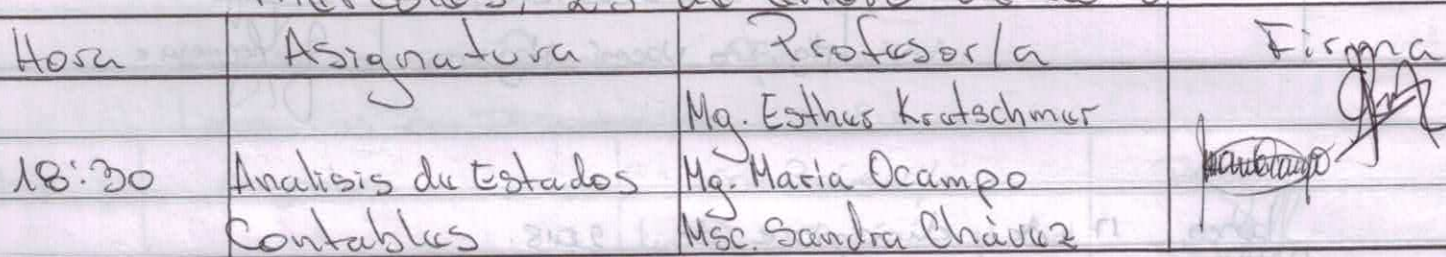 Hora Asignatura Profesor/a Firma
Mg. Esther Kretschmer
18:30 Analisis de Estados Mg. Maria Ocampo
Contables Msc. Sandra Chávez